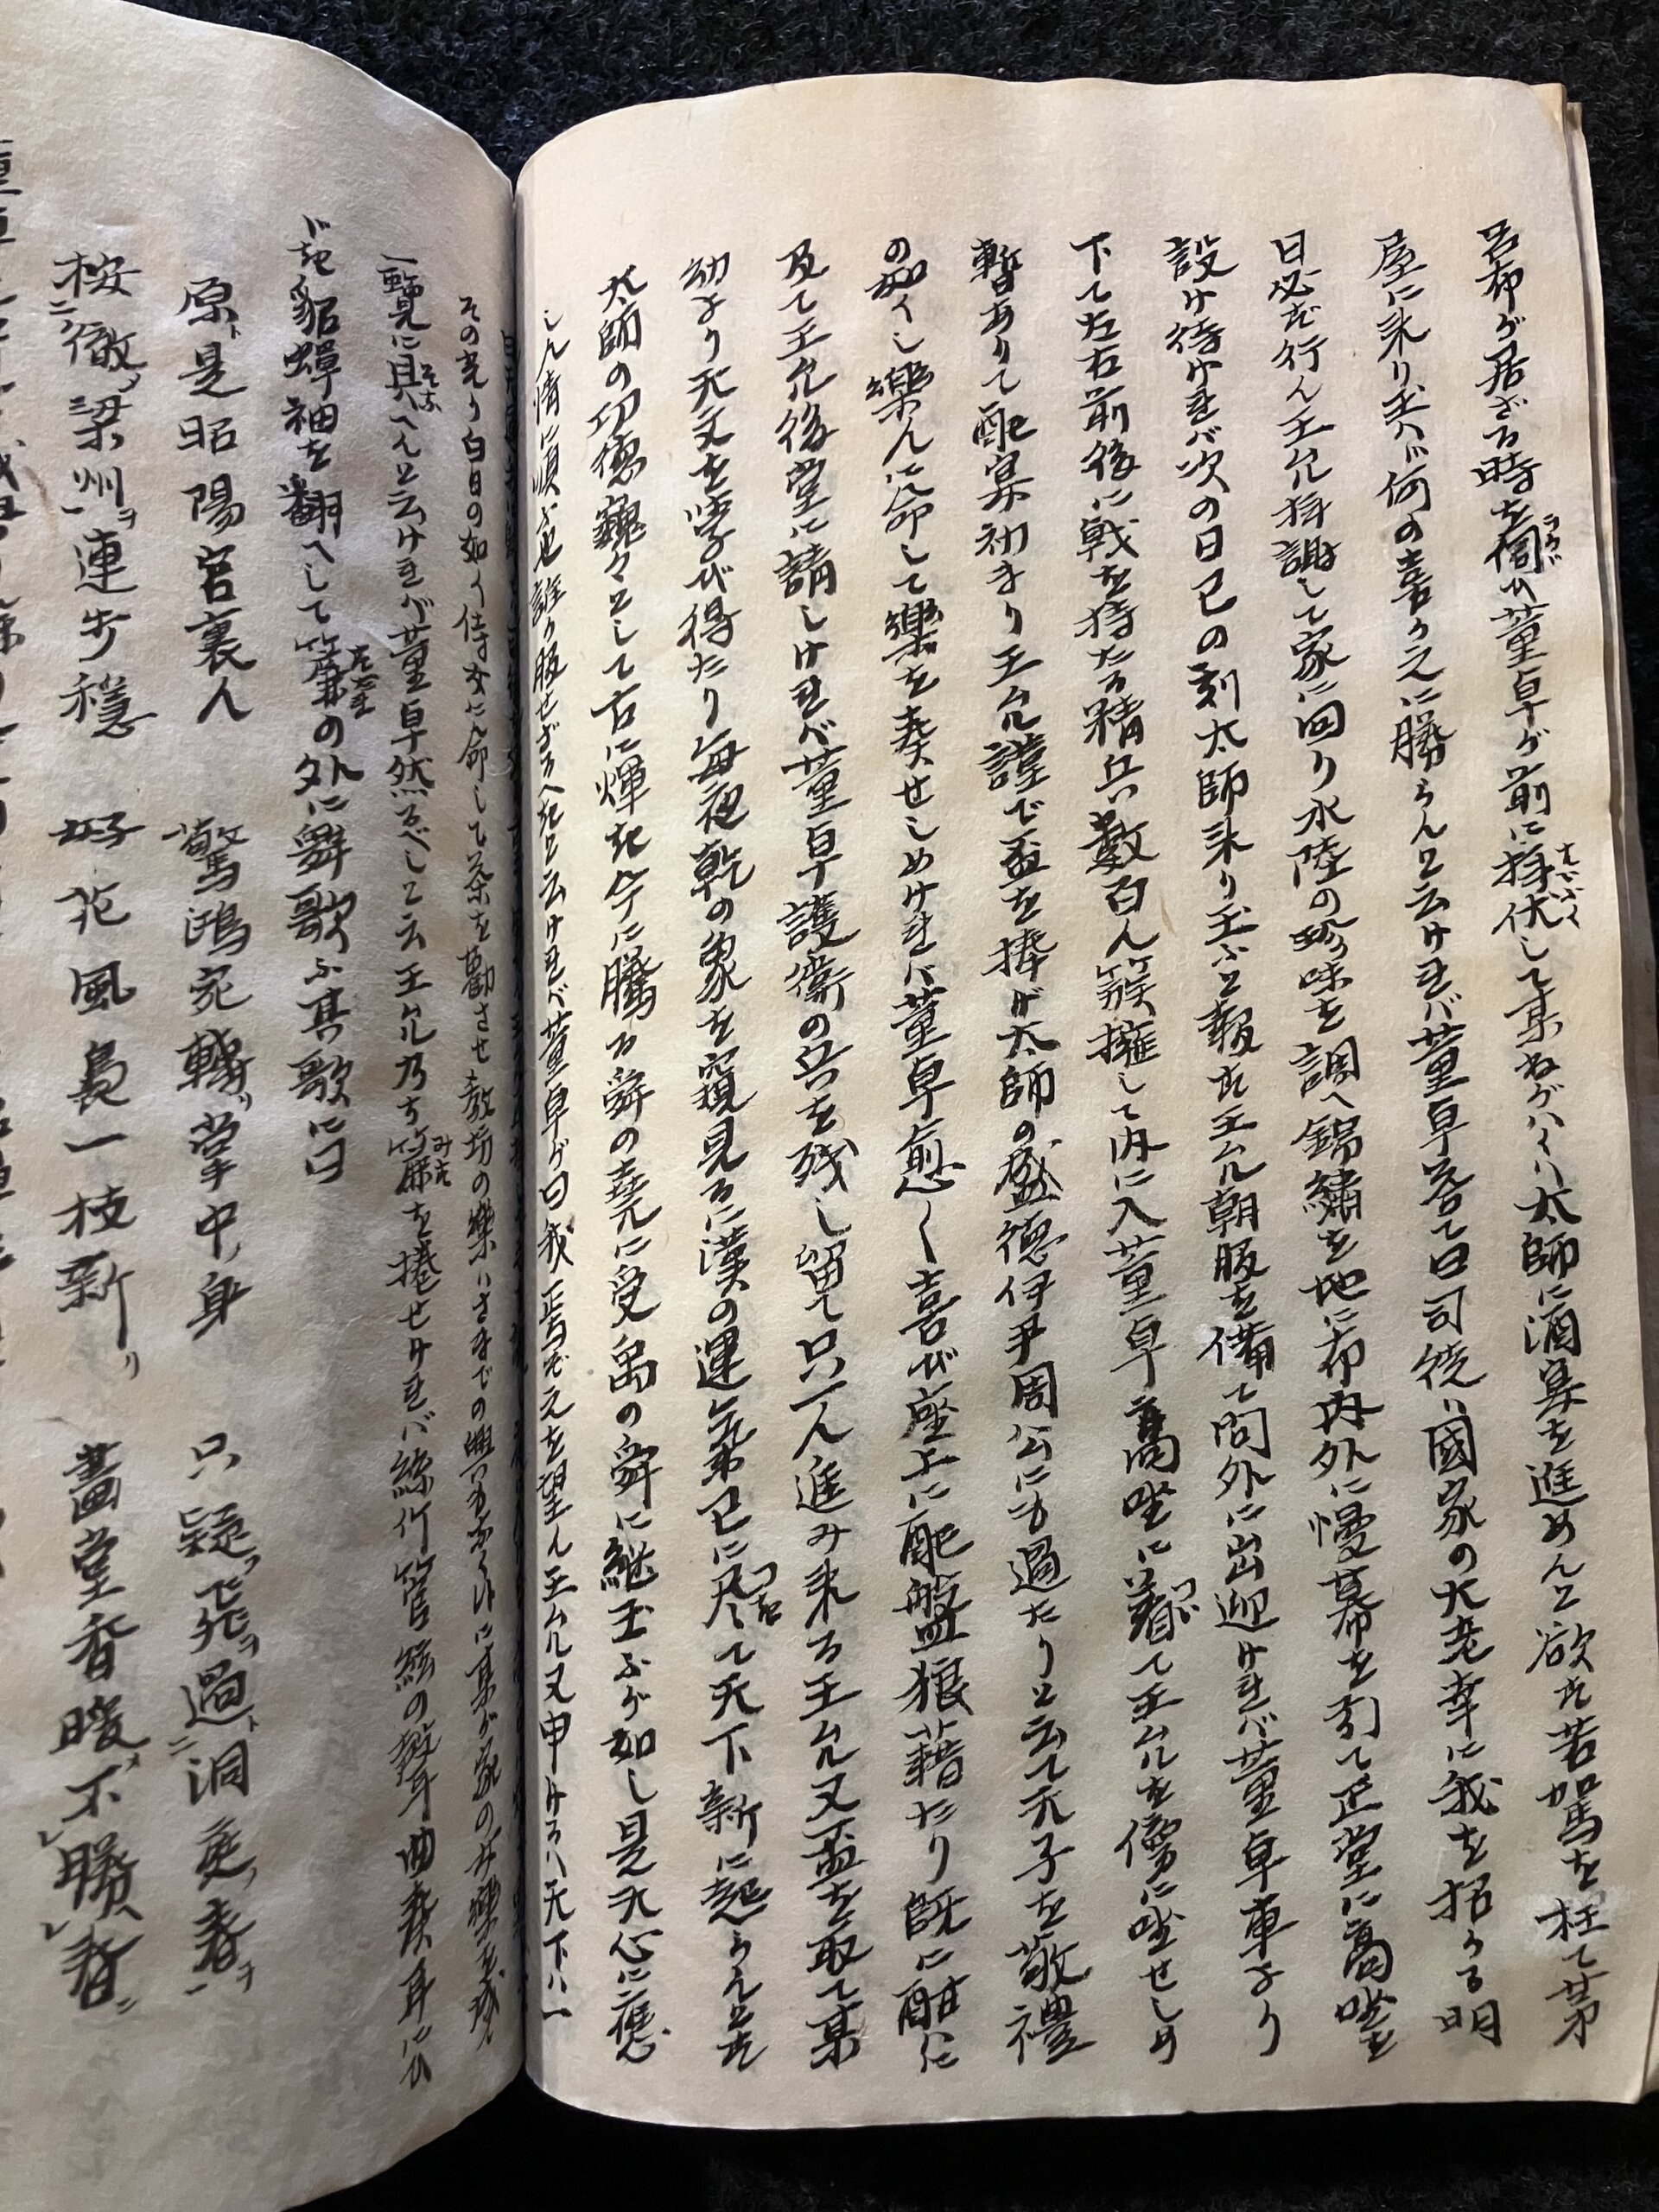 呂布ガ居ざる時を伺ヒ董卓ガ前に拜伏して某ねガハくハ太師に酒宴を進めんと欲す若駕を枉て茅
屋に来り玉ハヾ何の喜うえに勝らんと云けれバ董卓答て曰司徒ハ國家の大老幸に我を招うる明
日必ず行ん王允拜謝して家に回り水陸の珍味を調へ錦繡を地に布内外に慢幕を引て正堂に高坐を
設け待けれバ次の日巳の刻太師来り玉ふと報す王允朝服を備て門外に出迎けれバ董卓車より
下て左右前後に戟を持たる精兵数百人簇擁して内に入董卓高坐に着て王允を傍に坐せしめ
暫ありて配宴初まり王允謹で盃を捧げ太師の盛德伊尹周公にも過たりと云て天子を敬禮
の如くし樂人に命して樂を奏せしめけれバ董卓愈〱喜び座上に配盤狼藉たり既に酣に
及て王允後堂に請しけれバ董卓護衛の兵を残し留て只一人進み来る王允又盃を取て某
幼より天文を学び得たり毎夜乾の象を窺見るに漢の運気已に尽て天下新に起らんとす
太師の功德巍々として古に輝き今に騰る舜の堯に受禹の舜に継玉ふが如し是天心に應
し人情に順ふ也誰ウ服せざるへきと云けれバ董卓ガ曰我正焉ぞ之を望ん王允又申けるハ天下ハ一
その光り白日の如く侍女に命して茶を勸させ教坊の樂ハさまでの興もなく候に某ガ家の女樂を球
一覽に具へんと云けれバ董卓然るべしと云王允乃ち簾を捲せけれバ絲竹管絃の聲曲奏耳にひ
ヾき貂蟬袖を翻へして簾の外に舞歌ふ其歌に曰
原是昭陽宮裏人　驚鴻宛轉掌中身　只疑飛過洞庭春
按徹梁州連步穩　好花風裊一枝新　畵堂香暖不勝春